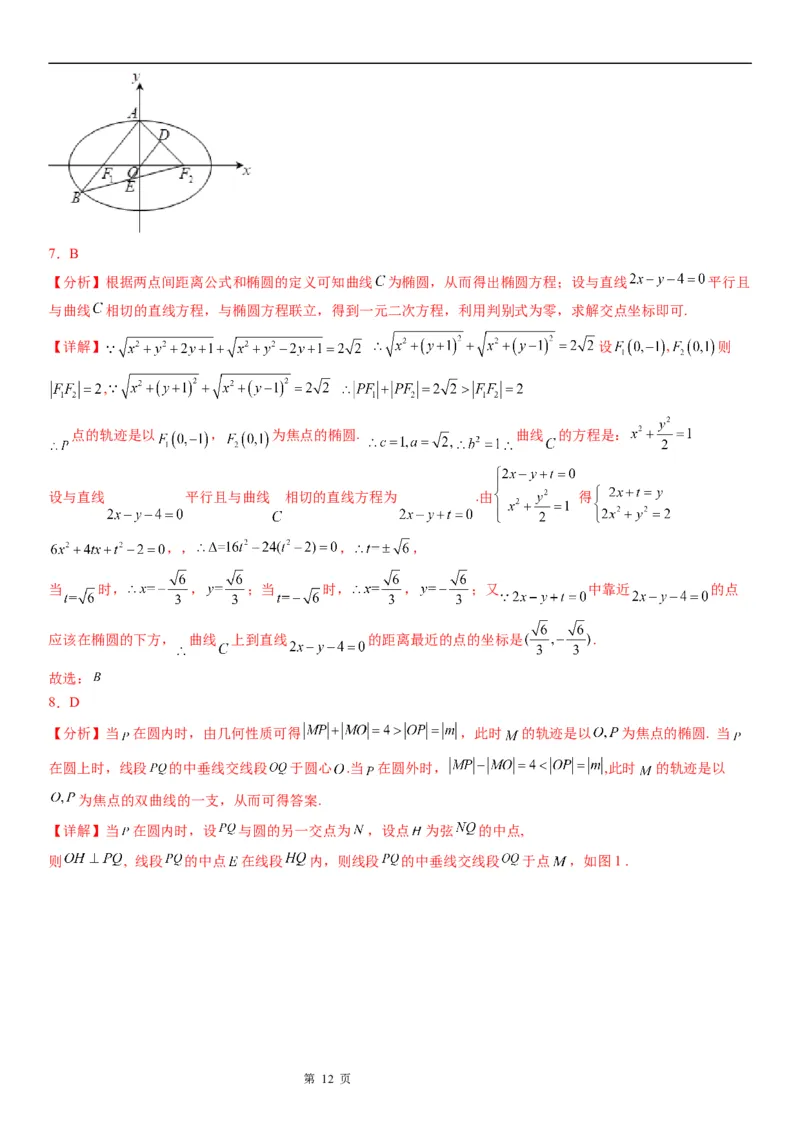 y
A
D
F₁ O F₂ x
B E
7．B
【分析】根据两点间距离公式和椭圆的定义可知曲线 C 为椭圆，从而得出椭圆方程；设与直线 2x－y－4＝0 平行且
与曲线 C 相切的直线方程，与椭圆方程联立，得到一元二次方程，利用判别式为零，求解交点坐标即可.
【详解】∵ √(x²+y²+2y+1)+√(x²+y²−2y+1)=2√2 ∴ √(x²+(y+1)²)+√(x²+(y−1)²)=2√2 设 F₁(0,−1), F₂(0,1) 则
|F₁F₂|=2,∵ √(x²+(y+1)²)+√(x²+(y−1)²)=2√2 ∴ |PF₁|+|PF₂|=2√2>|F₁F₂|=2
∴P 点的轨迹是以 F₁(0,−1)，F₂(0,1) 为焦点的椭圆. ∴c=1,a=√2,∴b²=1∴ 曲线 C 的方程是：x²+y²/2=1
设与直线 2x−y−4=0 平行且与曲线 C 相切的直线方程为 2x−y+t=0 .由{2x−y+t=0 x²+y²/2=1 得{2x+t=y 2x²+y²=2
6x²+4tx+t²−2=0，，∴Δ=16t²−24(t²−2)=0，∴t=±√6，
当 t=√6 时，∴x=−√6/3，y=√6/3；当 t=−√6 时，∴x=√6/3，y=−√6/3；又∵2x−y+t=0 中靠近 2x−y−4=0 的点
应该在椭圆的下方，∴ 曲线 C 上到直线 2x−y−4=0 的距离最近的点的坐标是(√6/3,−√6/3).
故选：B
8．D
【分析】当 P 在圆内时，由几何性质可得|MP|+|MO|=4>|OP|=|m|，此时 M 的轨迹是以 O,P 为焦点的椭圆. 当 P
在圆上时，线段 PQ 的中垂线交线段 OQ 于圆心 O .当 P 在圆外时，|MP|−|MO|=4<|OP|=|m|,此时 M 的轨迹是以
O,P 为焦点的双曲线的一支，从而可得答案.
【详解】当 P 在圆内时，设 PQ 与圆的另一交点为 N，设点 H 为弦 NQ 的中点,
则 OH⊥PQ, 线段 PQ 的中点 E 在线段 HQ 内，则线段 PQ 的中垂线交线段 OQ 于点 M，如图 1 .
第 12 页